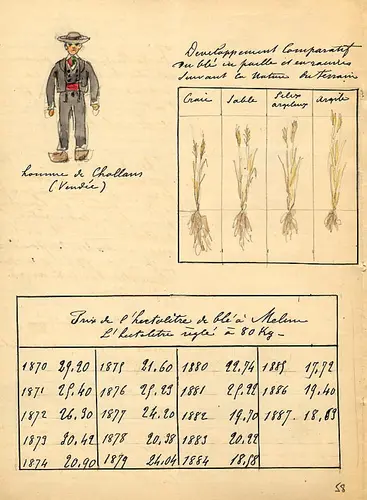 Homme de Challans
(Vendée)
Developpement Comparatif
Du blé en paille et en racines
Suivant la Nature du terrain
Craie Sable Silex argileux Argile
Prix de l'hectolitre de blé à Melun
L'hectolitre réglé à 80 Kg
1870 29.20 1875 21.60 1880 22.74 1885 17.72
1871 25.40 1876 25.23 1881 25.22 1886 19.40
1872 26.30 1877 24.20 1882 19.70 1887 18.63
1873 30.42 1878 20.38 1883 20.22
1874 20.90 1879 24.04 1884 18.58
58